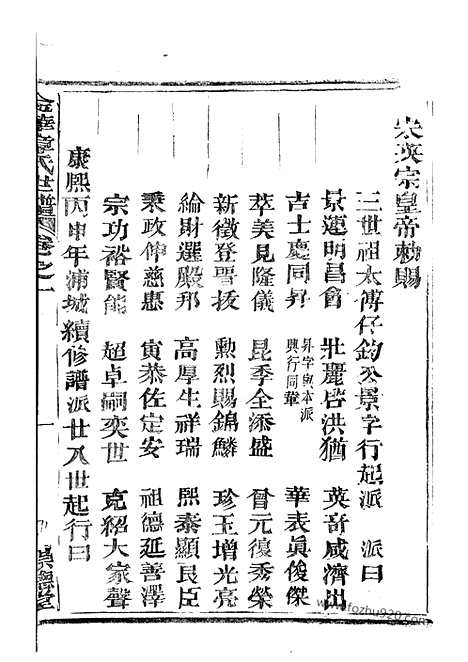 宋英宗皇帝勅賜
三世祖太傅仔鈞公景字行起派　派曰
景運明昌會　壯麗啓洪猶　英音咸濟出
吉士慶同昇　昇字與本派興行同輩　華表眞俊傑
萃美見隆儀　昆季全添盛　晉元復秀榮
新徵登璽拔　勳烈賜錦鱗　珍玉增光亮
綸財選殿邦　高厚生祥瑞　熙泰顯良臣
秉政伸慈惠　寅恭佐定安　祖德延善澤
宗功裕賢能　超卓嗣奕世　克紹大家聲
康熙丙申年浦城續修譜派廿八世起行曰
金華章氏世譜　卷之一
一
www.fozhu920.com